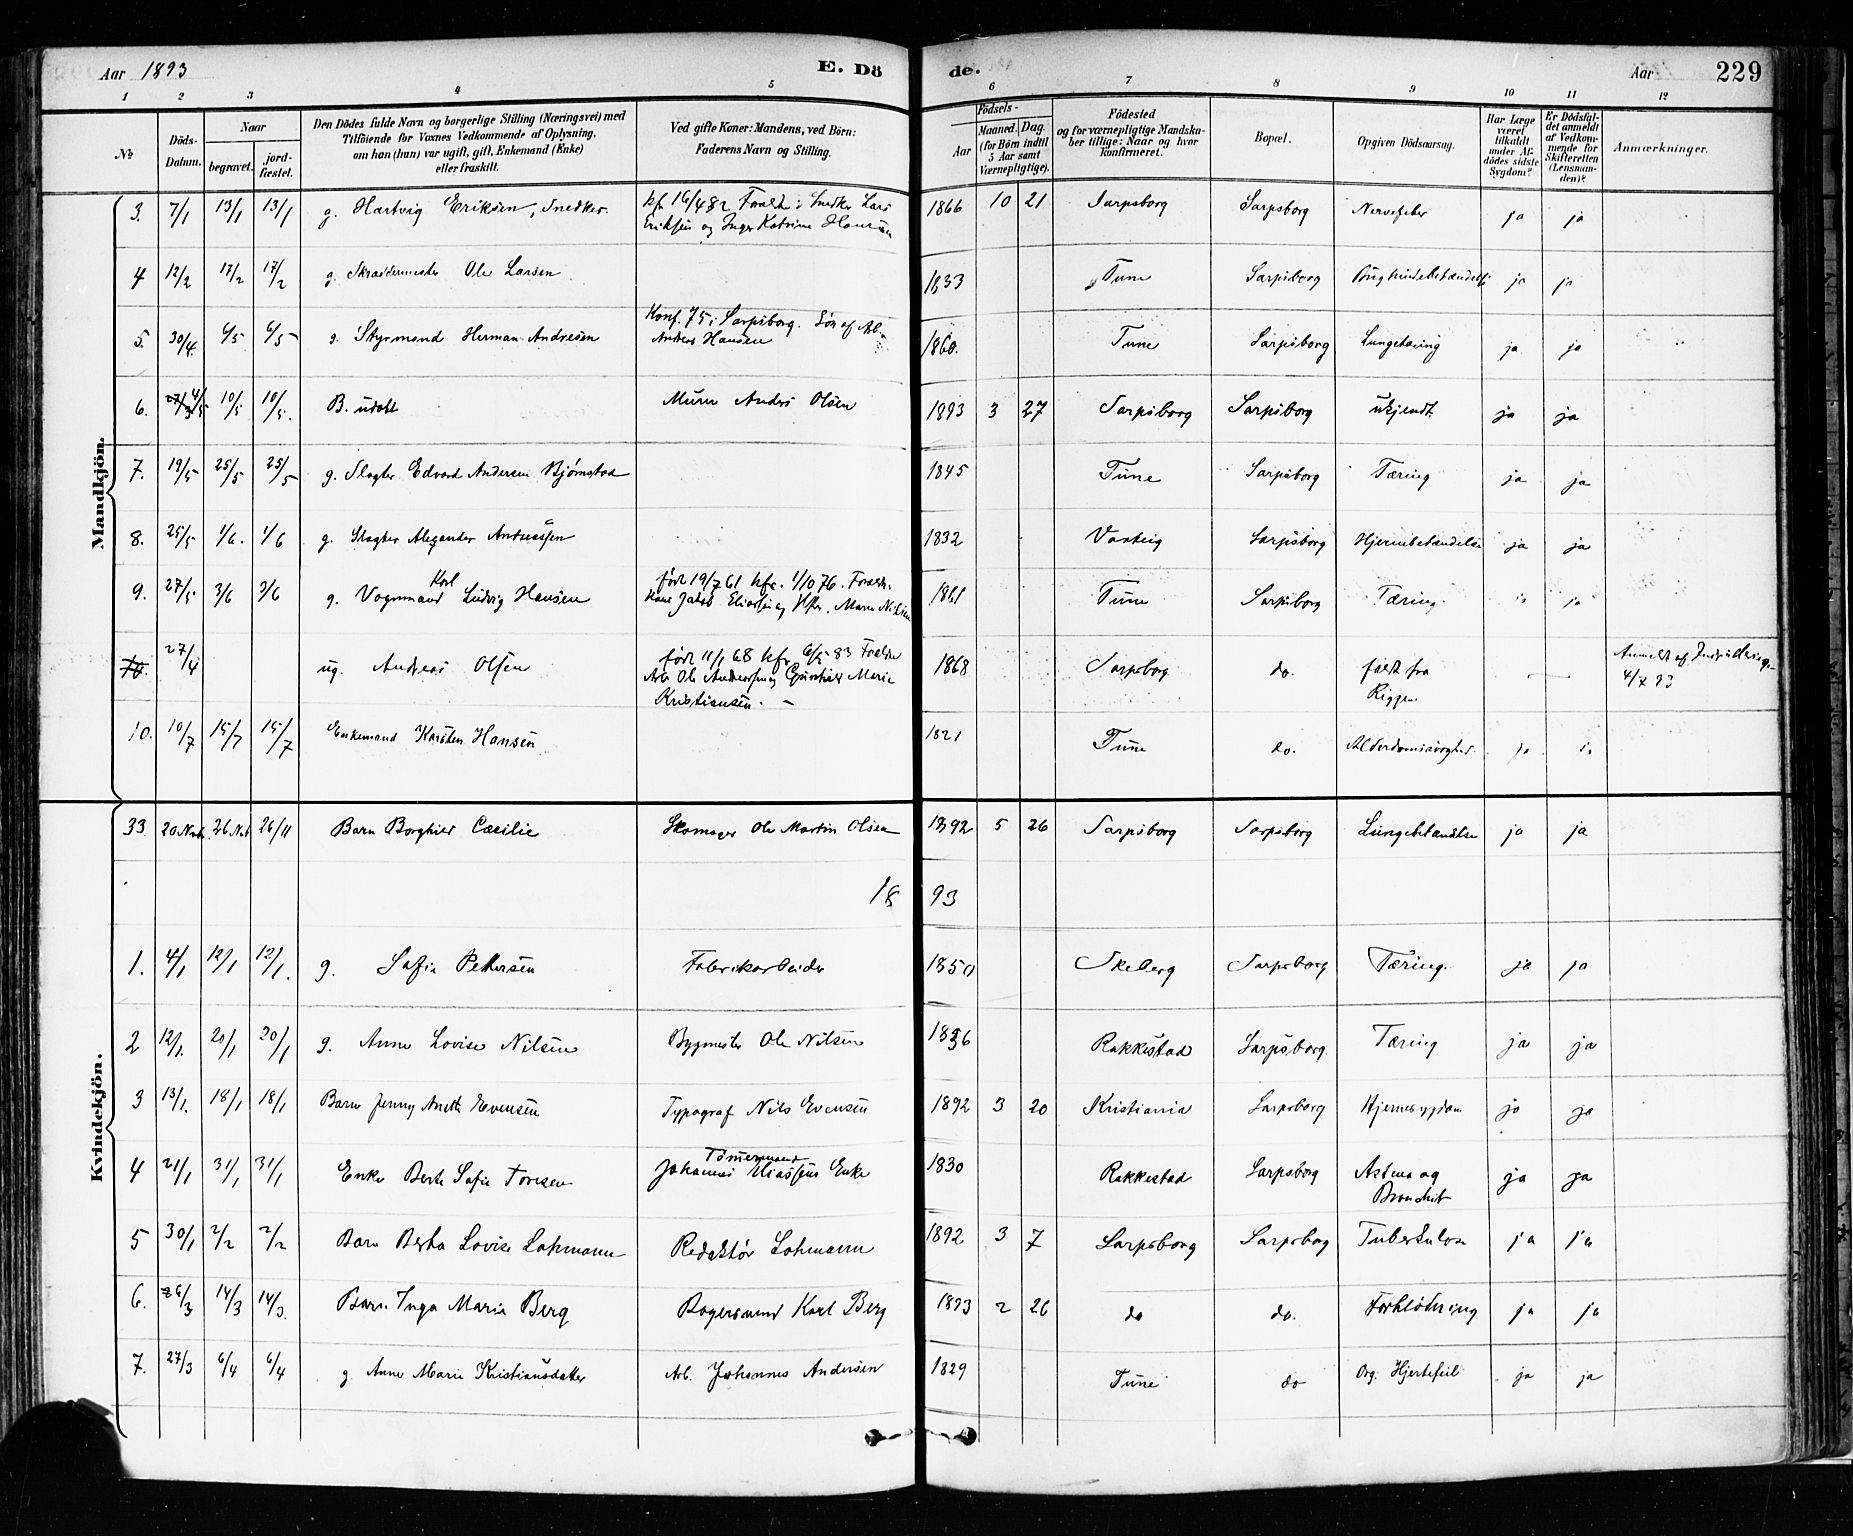 Aar 1893 E. Dö de. Aar 229
1 2 3 4 5 6 7 8 9 10 11 12
No. Döds-Datum. Naar begravet. jord-fæstet. Den Dödes fulde Navn og borgerlige Stilling (Næringsvei) med Tilföiende for Voxnes Vedkommende af Oplysning, om han (hun) var ugift, gift, Enkemand (Enke) eller fraskilt. Ved gifte Koner: Mandens, ved Börn: Faderens Navn og Stilling. Födsels- Aar Maaned. Dag. (for Börn indtil 5 Aar samt Værnepligtige). Födested og for værnepligtige Mandskaber tillige: Naar og hvor konfirmeret. Bopæl. Opgiven Dödsaarsag. Har Læge været tilkaldt under Afdödes sidste Sygdom? Er Dödsfaldet anmeldt af Vedkommende for Skifteretten (Lensmanden)? Anmærkninger.
Mandkjön.
3. 7/1 13/1 13/1 g. Hartvig Eriksen, Snedker. kf. 16/4 82 Foreld: Snedker Lars Eriksen og Inger Katrine Hansen 1866 10 21 Sarpsborg Sarpsborg Nervefeber ja ja
4 12/2 17/2 17/2 g. Skræddermester Ole Larsen 1833 Tune Sarpsborg Brysthindebetændelse ja ja
5. 30/4. 6/5 6/5 g. Styrmand Herman Andresen Konf. 75 i Sarpsborg. Søn af Arb. Anders Hansen 1860. Tune Sarpsborg Lungetæring ja ja
6. 27/3 4/5 10/5 10/5. B. udøbt Murer Anders Olsen 1893 3 27 Sarpsborg Sarpsborg ukjendt. ja ja
7. 19/5 25/5 25/5 g. Slagter Edvard Andersen Bjørnstad 1845 Tune Sarpsborg Tæring ja ja
8. 25/5 1/6. 1/6 g. Slagter Alexander Andreassen 1832 Varteig Sarpsborg Hjernebetændelse ja ja
9. 27/5 3/6 3/6 g. Vognmand Karl Ludvig Hansen født 19/7 61 kfr. 1/10 76. Foreldr. Hans Jakob Eliassen og Hstr. Maren Nilsen 1861 Tune Sarpsborg Tæring. ja ja
10. 27/4 ug. Andreas Olsen født 11/1 68 kfr. 6/5 83 Foreldre Arb. Ole Andersen og Gunhild Marie Kristiansen. - 1868 Sarpsborg do. faldt fra Riggen — Anmeldt af 4/7 93
10. 10/7 15/7 15/7 Enkemand Karsten Hansen 1821 Tune do. Alderdomssvaghed ja ja
Kvindekjön.
33 20 Nov. 26 Nov 26/11 Barn Borghild Cæcilie Skomager Ole Martin Olsen 1892 5 26 Sarpsborg Sarpsborg Lungebetændelse ja ja
18 93
1. 4/1 12/1 12/1. g. Sofie Pettersen Fabrikarbeider 1850 Skeberg Sarpsborg Tæring. ja ja
2 12/1. 20/1 20/1 g. Anne Lovise Nilsen Bygmester Ole Nilsen 1836 Rakkestad Sarpsborg. Tæring ja ja
3 13/1. 18/1 18/1 Barn Jenny Anette Evensen Typograf Nils Evensen 1892 3 20 Kristiania Sarpsborg Hjernesygdom ja ja
4 21/1 31/1 31/1 Enke Berte Sofie Toresen Tømmermand Johannes Eliassens Enke 1830 Rakkestad Sarpsborg Astma og Bronchit ja ja
5 30/1 2/2 2/2 Barn Berta Lovise Lohmann Redaktør Lohmann 1892 3 7 Sarpsborg Sarpsborg Tuberkulose ja ja
6. 26/3 14/3 14/3. Barn Inga Marie Berg Bagersvend Karl Berg 1893 2 26 do do. Forblödning ja ja
7. 27/3 6/4 6/4 g Anne Marie Kristiansdatter Arb. Johannes Andersen 1829 Tune do Org. Hjertefeil ja ja